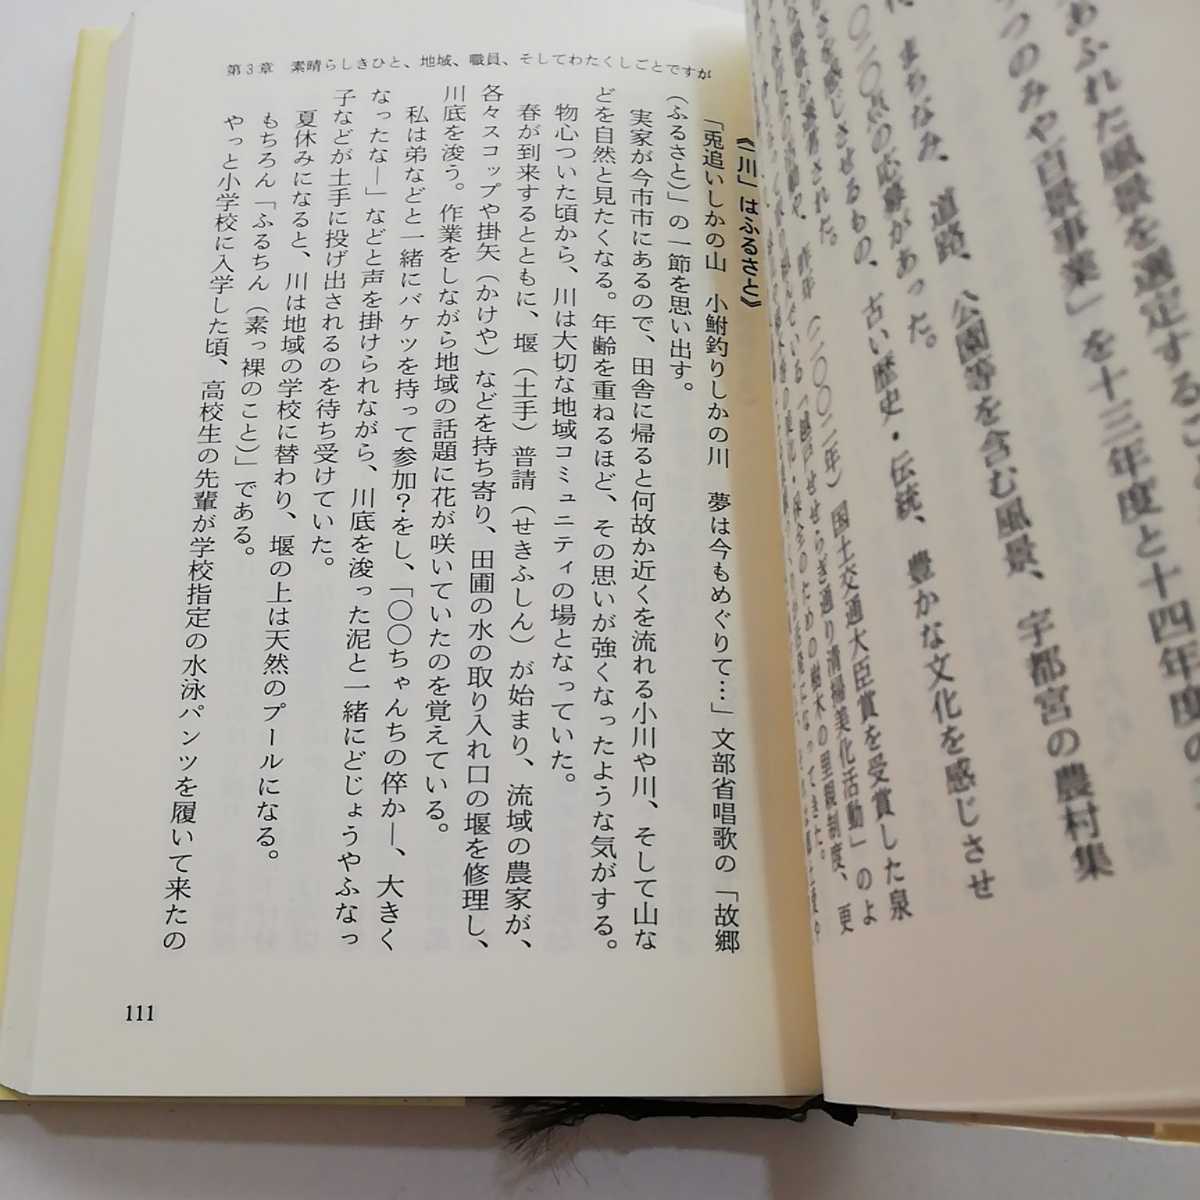 あふれた風景を選定するこ
つのみや百景事業」を十三年度と十四年度の
まちなみ、道路、公園等を含む風景、宇都宮の農村集
さを感じさせるもの、古い歴史・伝統、豊かな文化を感じさせ
の応募があった。
された。
(二〇〇二年)国土交通大臣賞を受賞した泉
せせらぎ通り清掃美化活動」のよ
のための樹木の里親制度、更
第3章 素晴らしきひと、地域、職員、そしてわたくしごとですが
《「川」はふるさと》
「兎追いしかの山 小鮒釣りしかの川 夢は今もめぐりて…」文部省唱歌の「故郷
(ふるさと)」の一節を思い出す。
実家が今市市にあるので、田舎に帰ると何故か近くを流れる小川や川、そして山な
どを自然と見たくなる。年齢を重ねるほど、その思いが強くなったような気がする。
物心ついた頃から、川は大切な地域コミュニティの場となっていた。
春が到来するとともに、堰(土手)普請(せきふしん)が始まり、流域の農家が、
各々スコップや掛矢(かけや)などを持ち寄り、田圃の水の取り入れ口の堰を修理し、
川底を浚う。作業をしながら地域の話題に花が咲いていたのを覚えている。
私は弟などと一緒にバケツを持って参加?をし、「〇〇ちゃんちの倅か―、大きく
なったな―」などと声を掛けられながら、川底を浚った泥と一緒にどじょうやふなっ
子などが土手に投げ出されるのを待ち受けていた。
夏休みになると、川は地域の学校に替わり、堰の上は天然のプールになる。
もちろん「ふるちん(素っ裸のこと)」である。
やっと小学校に入学した頃、高校生の先輩が学校指定の水泳パンツを履いて来たの
111